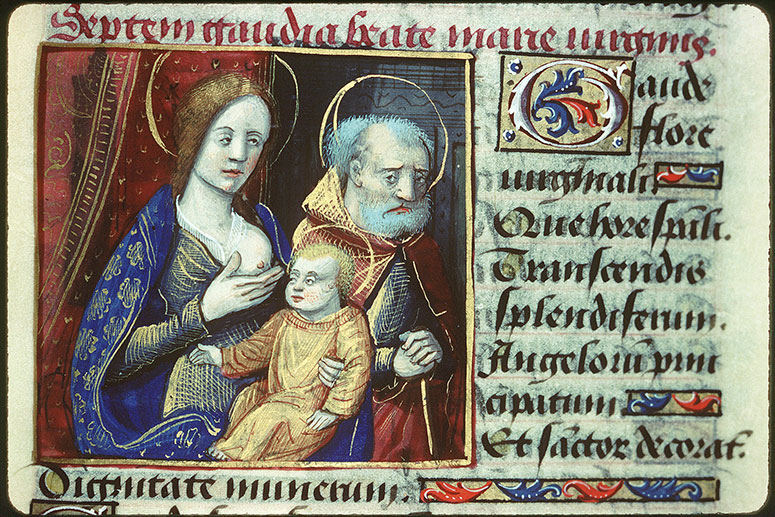 Septem gaudia beate marie uirginis.
Gaude
flore
uirginali
Que honore sp̄uali.
Transcendis
splendiferum.
Angelorū prin
cipatum
Et sāctor decorat.
Dignitate munerum.